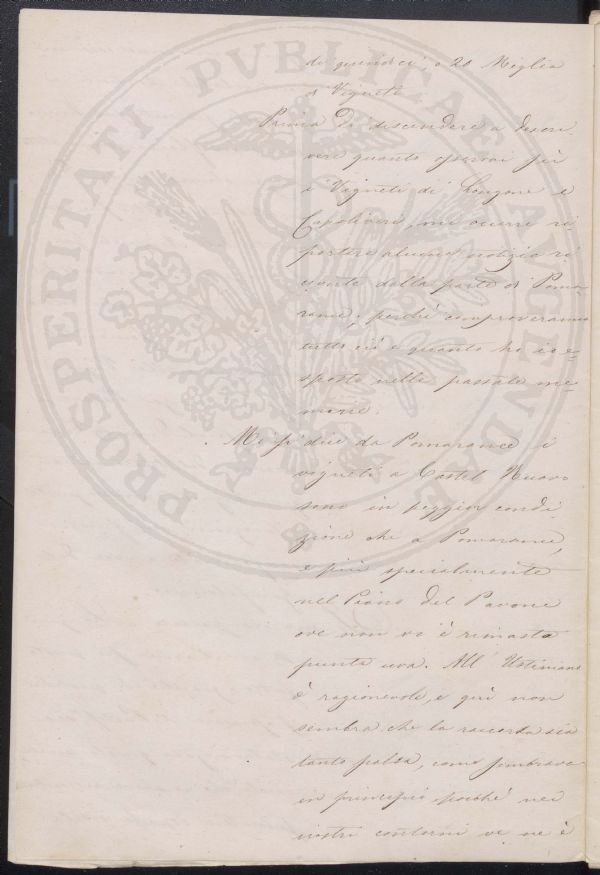 PROSPERITATI PVBLICAE AVGENDAE
di quindici o 20 Miglia
di Vigneti
Prima di discendere a descri
vere quanto osservai pei
i Vigneti di Longone e
Capoliveri, mi occorre ri
portare alcune notizie ri
cevute dalla parte di Poma-
rance, perché comproveranno
tutto ciò e quanto ho io e-
sposto nelle passate me-
morie.
Mi si dice da Pomarance i
vigneti a Castel Nuovo
sono in peggior condi-
zione che a Pomarance,
e più specialmente
nel Piano del Pavone
ove non vi è rimasta
punta uva. All'
è ragionevole, e quì non
sembra che la raccolta sia
tanto falsa, come sembrava
in principio poiché nei
nostri contorni ve ne è